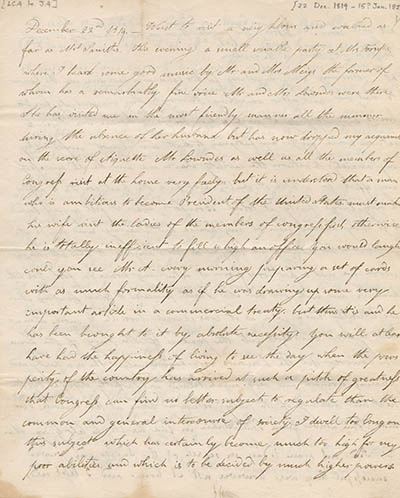 [LCA to JA]
[22 Dec. 1819 - 15 Jan. 182
December 23rd 1819 — Went to visit a neighbour and walked as
far as Mrs Smiths. The evening a small sociable party at
where I heard some good music by Mr and Mrs Meigs the former of
whom has a remarkably fine voice Mr and Mrs Lowndes were there
She has visited me in the most friendly manner all the summer
during the absence of her husband but has now dropped my acquaintance
on the score of etiquette Mr Lowndes as well as all the members of
Congress visit at the house very freely but it is understood that a man
who is ambitious to become President of the United States must make
his wife visit the Ladies of the members of congress first otherwise
he is totally inefficient to fill so high an office you would laugh
could you see Mr A. every morning preparing a set of cards
with as much formality as if he was drawing up some very
important article in a commercial treaty. but thus it is and he
has been brought to it by absolute necessity. You will at least
have had the happiness of living to see the day when the pros
perity of the country has arrived at such a pitch of greatness
that Congress can find no better subject to regulate than the
common and general intercourse of society. I dwell too long on
this subject which has certainly become much too high for my
poor abilities and which is to be decided by much higher powers